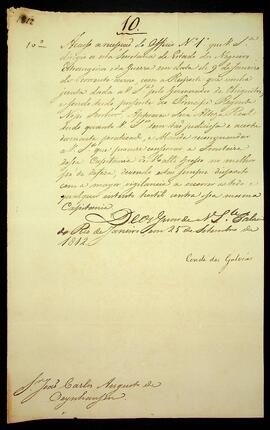 1812
10.
10ª Accuso a recepção do Officio Nº 1º que V. Sª
dirigio a esta Secretaria de Estado dos Negocios
Estrangeiros, e da Guerra em data de 9 de Janeiro
do corrente anno com a Resposta que vinha
junta dada a V. Sª pelo Governador de Chiquitos,
e sendo tudo presente ao Principe Regente
Nosso Senhor; Approva Sua Alteza Real
tudo quanto V. S. a este
Manda recomendar
a V. Sª que procure conservar a Fronteira
dessa Capitania de Matto Grosso no melhor
pé de defeza, devendo estar sempre disposto
com a mayor vigilancia a
qualquer intento hostil contra essa mesma
Capitania.
Deos Guarde a V. Sª Palacio
do Rio de Janeiro em 25 de Setembro de
1812.
Conde das Galveas
Sr. João Carlos Augusto de
Oeynhausen